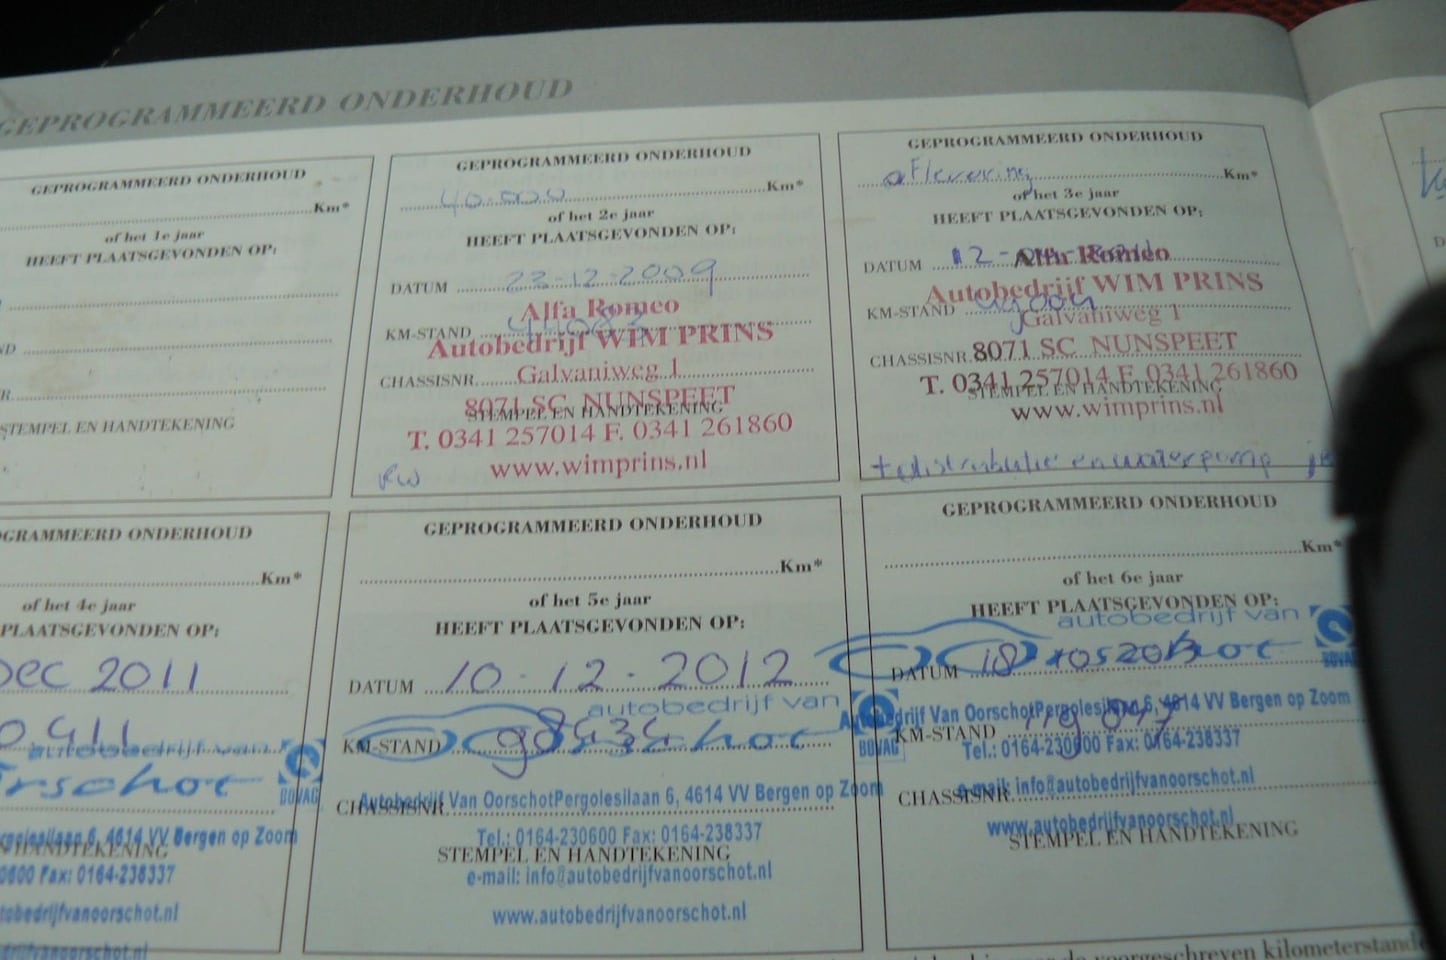 GEPROGRAMMEERD ONDERHOUD
GEPROGRAMMEERD ONDERHOUD
Km*
of het 1e jaar
HEEFT PLAATSGEVONDEN OP:
STEMPEL EN HANDTEKENING
GEPROGRAMMEERD ONDERHOUD
40.000 Km*
of het 2e jaar
HEEFT PLAATSGEVONDEN OP:
DATUM 23-12-2009
Alfa Romeo
KM-STAND
Autobedrijf WIM PRINS
CHASSISNR. Galvaniweg 1
8071 SC NUNSPEET
STEMPEL EN HANDTEKENING
T. 0341 257014 F. 0341 261860
www.wimprins.nl
GEPROGRAMMEERD ONDERHOUD
aflevering Km*
of het 3e jaar
HEEFT PLAATSGEVONDEN OP:
DATUM
Alfa Romeo
Autobedrijf WIM PRINS
KM-STAND
Galvaniweg 1
CHASSISNR. 8071 SC NUNSPEET
T. 0341 257014 F. 0341 261860
STEMPEL EN HANDTEKENING
www.wimprins.nl
+ distributie en waterpomp
GRAMMEERD ONDERHOUD
Km*
of het 4e jaar
PLAATSGEVONDEN OP:
DEC 2011
0411
autobedrijf van
orschot
BOVAG
rgolesilaan 6, 4614 VV Bergen op Zoom
HANDTEKENING
0600 Fax: 0164-238337
tobedrijfvanoorschot.nl
GEPROGRAMMEERD ONDERHOUD
Km*
of het 5e jaar
HEEFT PLAATSGEVONDEN OP:
DATUM 10-12-2012
autobedrijf van
KM-STAND 98434
BOVAG
CHASSISNR.
Autobedrijf Van Oorschot Pergolesilaan 6, 4614 VV Bergen op Zoom
Tel.: 0164-230600 Fax: 0164-238337
STEMPEL EN HANDTEKENING
e-mail: info@autobedrijfvanoorschot.nl
www.autobedrijfvanoorschot.nl
GEPROGRAMMEERD ONDERHOUD
Km*
of het 6e jaar
HEEFT PLAATSGEVONDEN OP:
autobedrijf van
DATUM
BOVAG
Autobedrijf Van Oorschot Pergolesilaan 6, 4614 VV Bergen op Zoom
KM-STAND
Tel.: 0164-230600 Fax: 0164-238337
e-mail: info@autobedrijfvanoorschot.nl
CHASSISNR.
www.autobedrijfvanoorschot.nl
STEMPEL EN HANDTEKENING
voorgeschreven kilometerstand